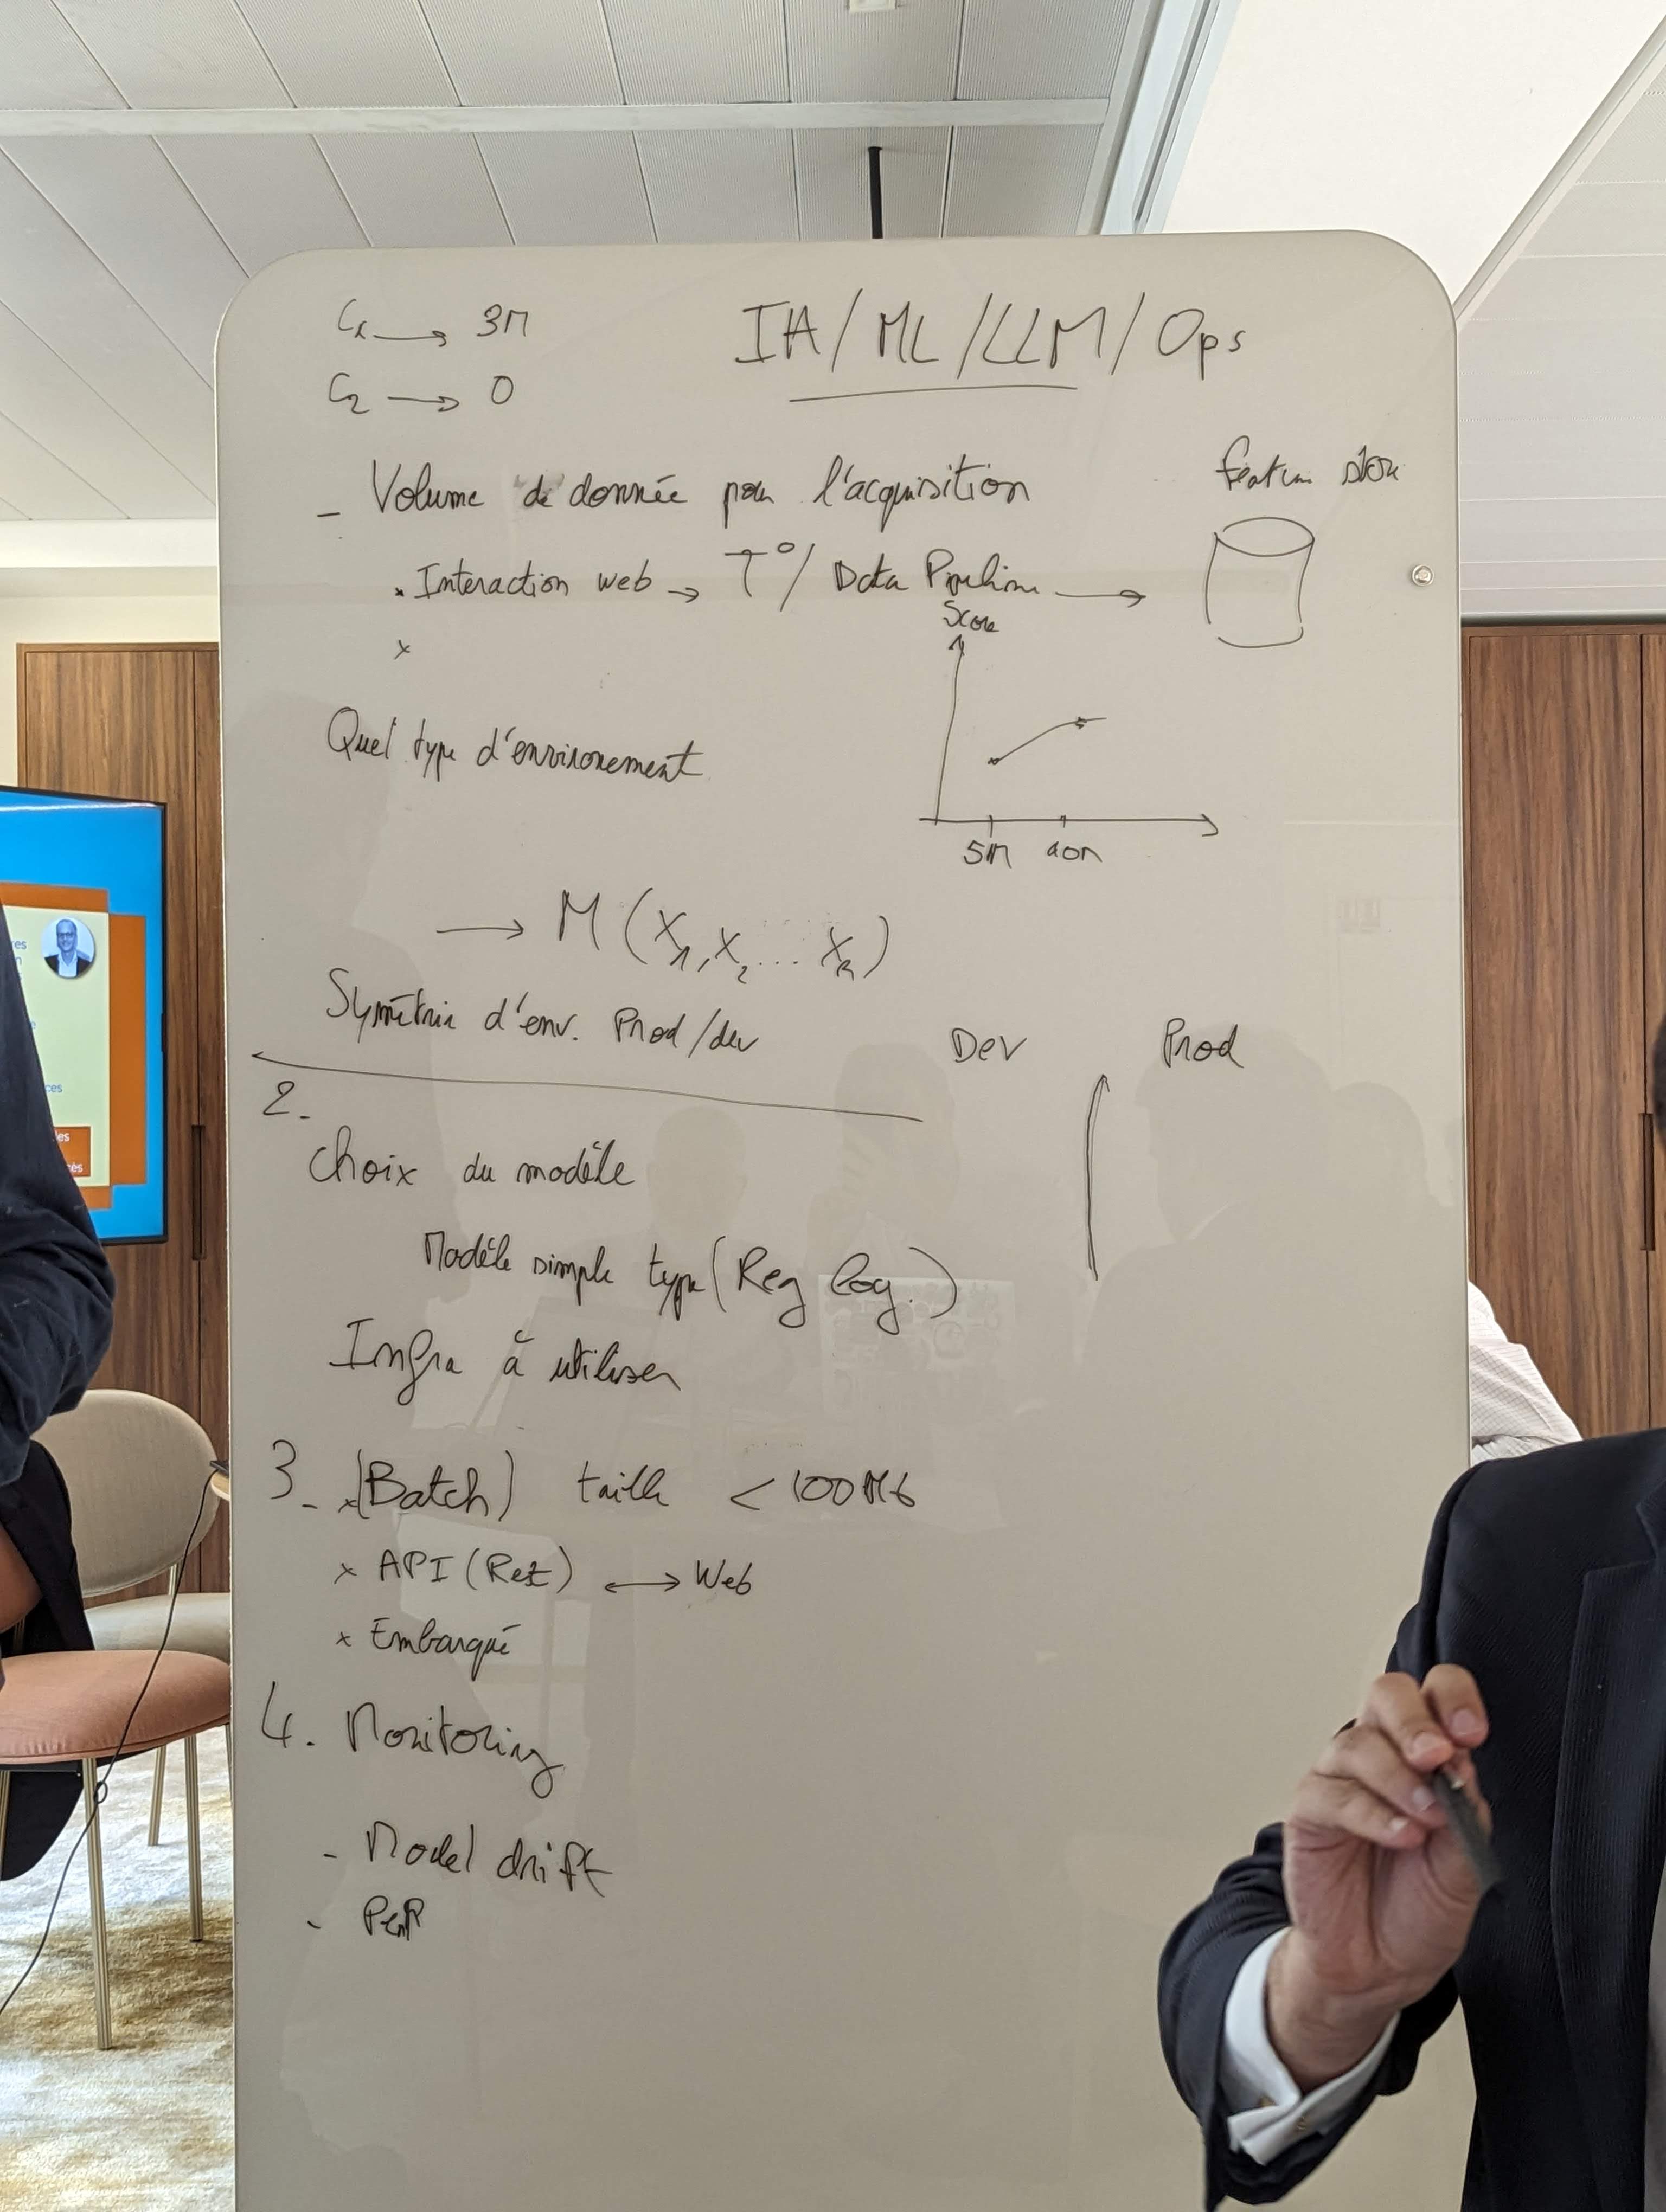 C1 → 3M
C2 → 0
IA/ML/LLM/Ops
- Volume de donnée pour l'acquisition
Feature store
. Interaction web → T°/ Data Pipeline →
x
Score
Quel type d'environement
5M 10M
→ M (X1, X2 ... Xn)
Symétrie d'env. Prod/dev
Dev Prod
2.
Choix du modèle
Modèle simple type (Reg log.)
Infra à utiliser
3 - x (Batch) taille < 100 Mb
x API (Rest) ↔ Web
x Embarqué
4. Monitoring
- Model drift
- Perf